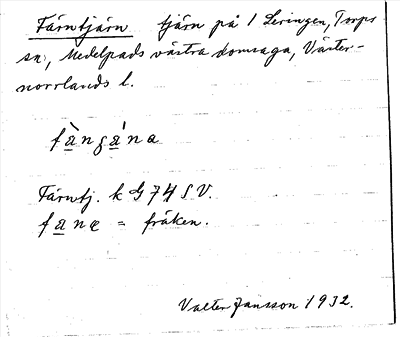 Tärntjärn tjärn på 1 Leringen, Torps
sn, Medelpads västra domsaga, Väster-
norrlands l.
fàngána
Tärntj. k G 74 S V.
fane = fräken.
Valter Jansson 1932.